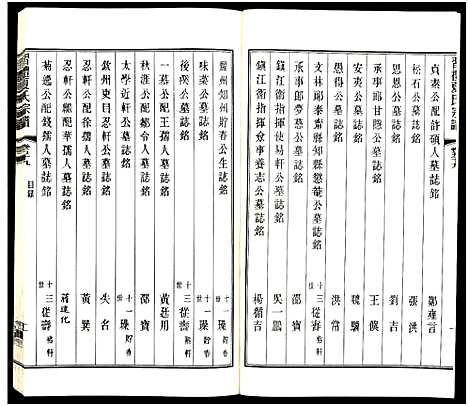 貞素公配許碩人墓誌銘 鄒雍言
松石公墓誌銘 張洪
思恩公墓誌銘 劉吉
愚得公墓誌銘 王㒜
安夷公墓誌銘 魏驥
承事郎甘隱公墓誌銘 洪常
文林郎泰興知縣懲菴公墓誌銘 十三世從壽 裕軒
承事郎勞恐公墓誌銘 邵寶
鎮江衛指揮使易軒公墓誌銘 吳一鵬
鎮江衛指揮僉事養志公墓誌銘 楊循吉
晉州知州貯春公生誌銘
味菽公墓誌銘 十一世璞 貯春
後葵公墓誌銘 十三世從壽 裕軒
一慕公配王孺人墓誌銘 黃廷用
秋涯公配徐孺人墓誌銘 邵寶
太學近軒公墓誌銘 十一世璞 貯春
欽州吏目忍軒公墓誌銘 失名
忍軒公配徐孺人墓誌銘 黃巽
忍軒公繼配華孺人墓誌銘 蔣達化
菊逸公配錢孺人墓誌銘 十三世從壽 裕軒
目錄